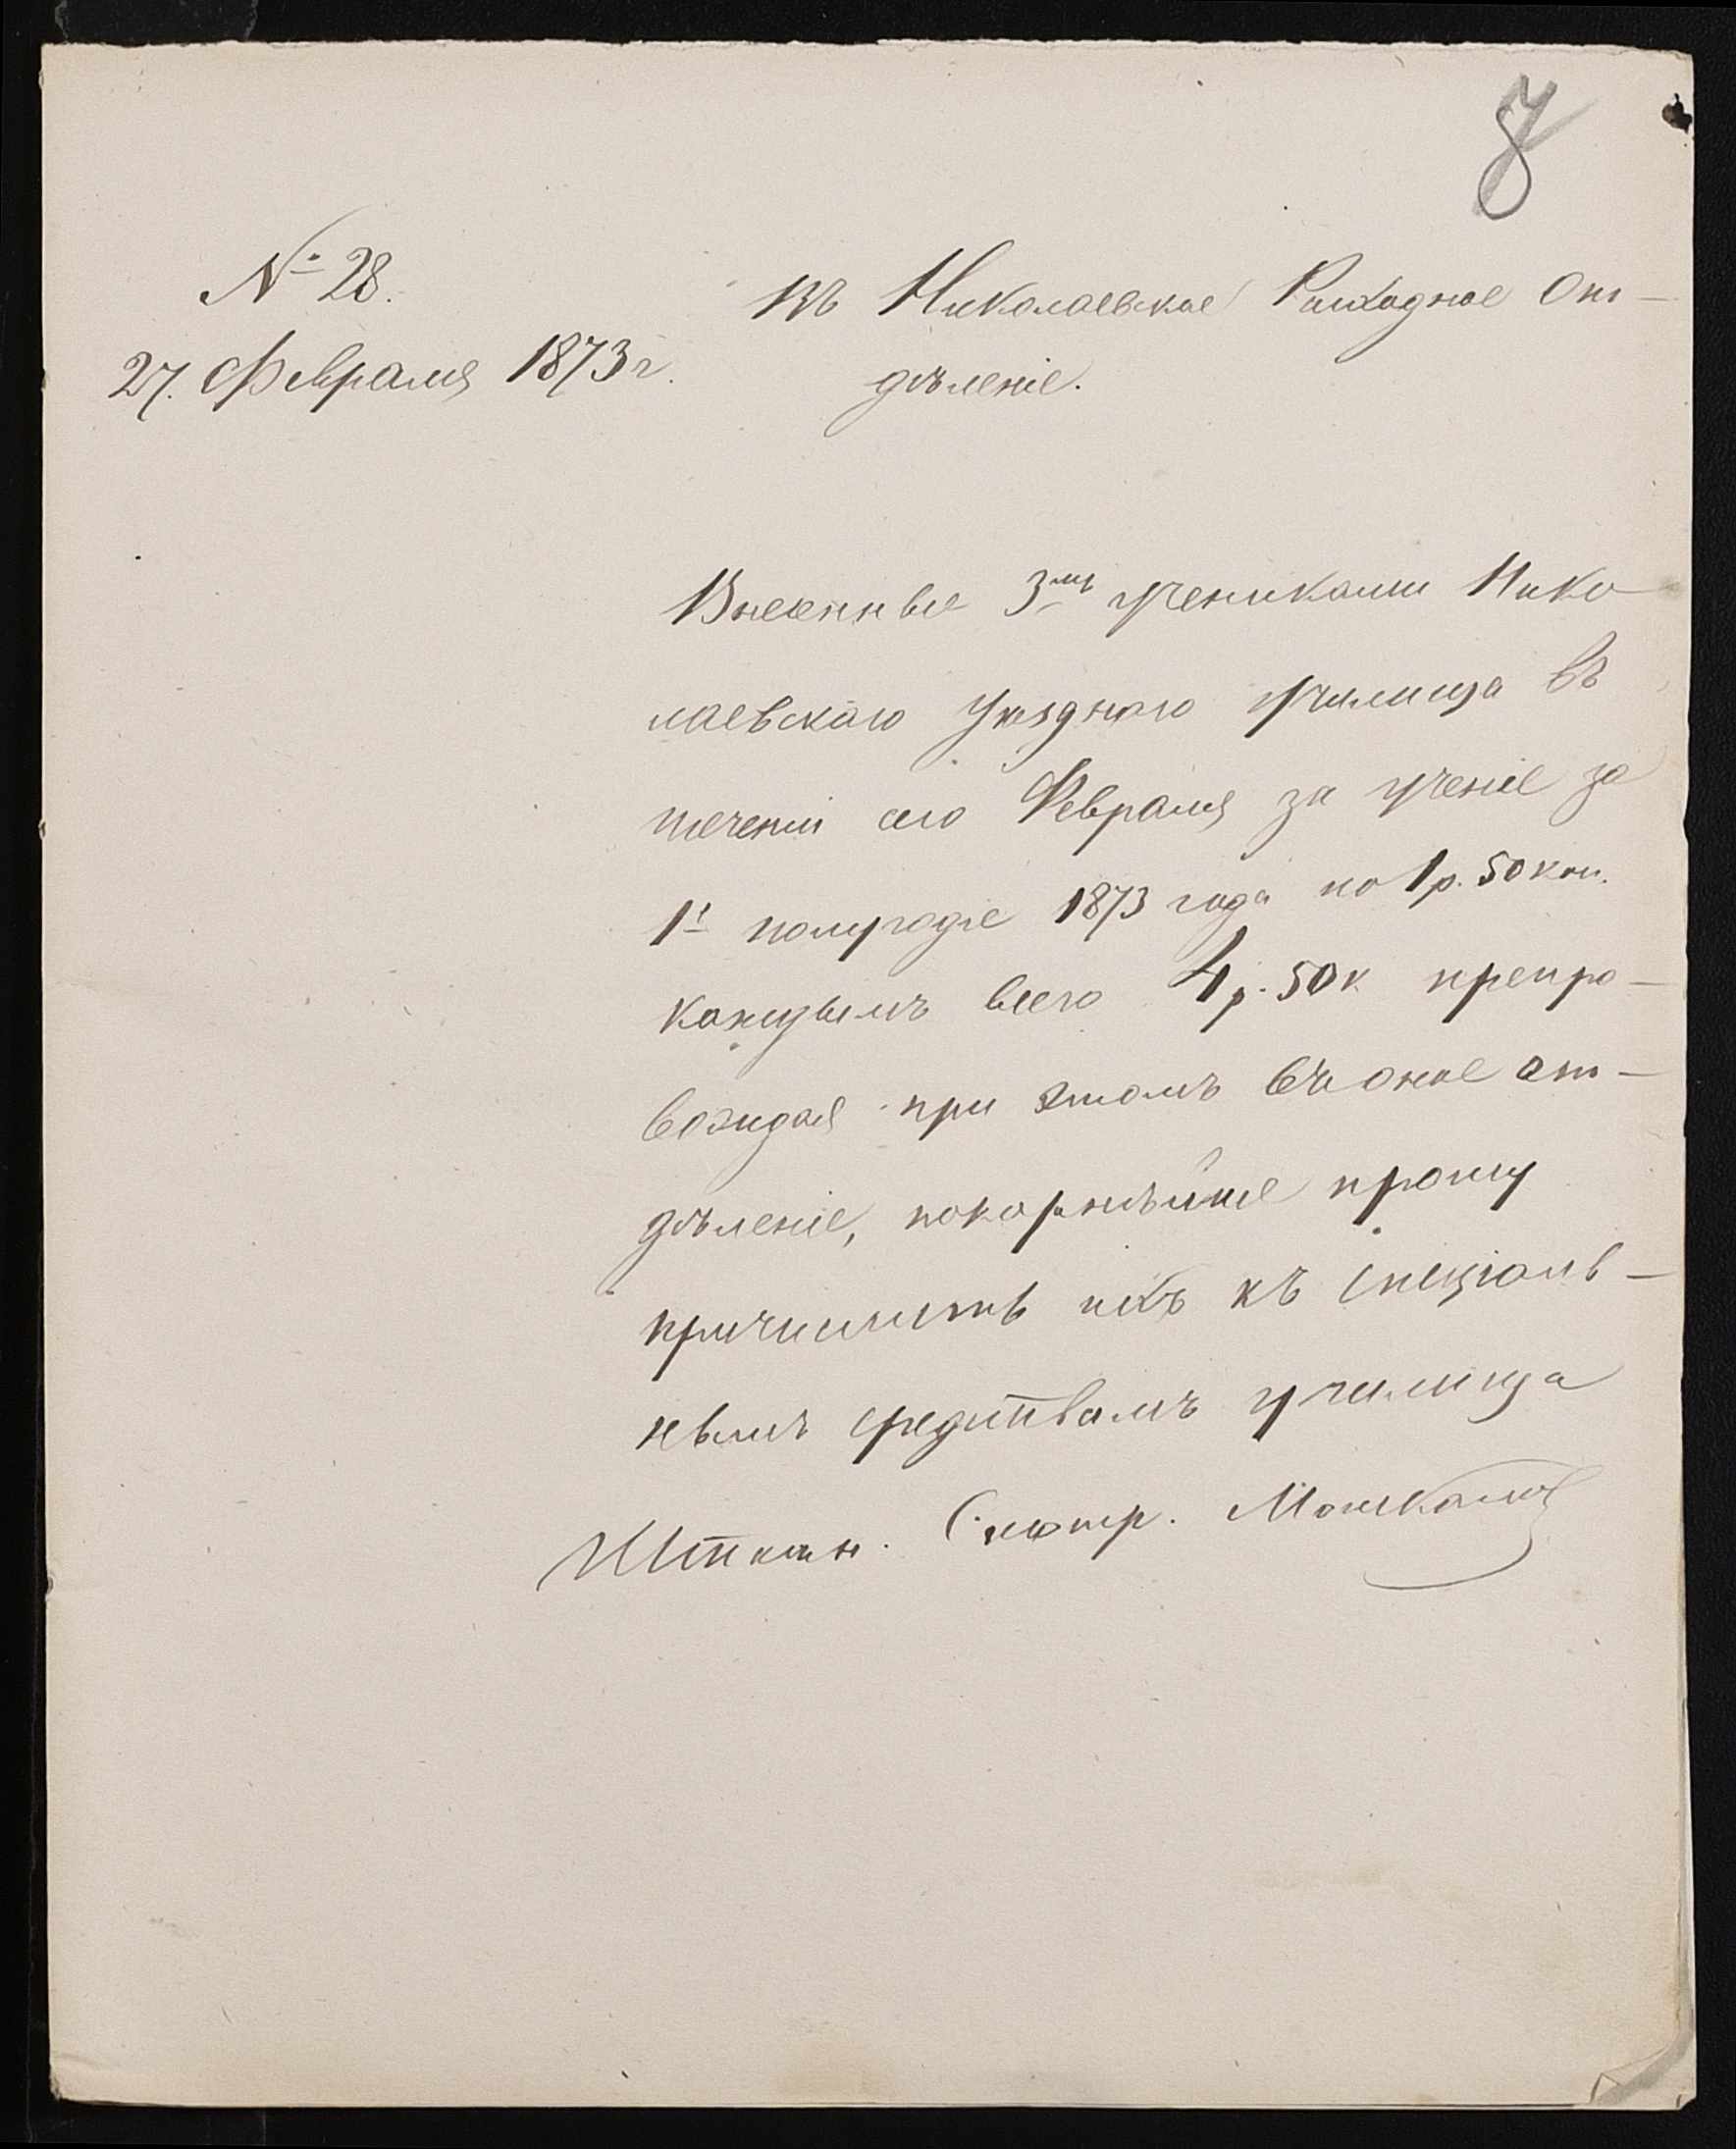 8
№ 28.
27. Февраля 1873 г.
Въ Николаевское Расходное От-
дѣленіе.
Внесенные 3мя учениками Нико
лаевскаго Уѣзднаго училища въ
теченіи сего Февраля за ученіе за
1е полугодіе 1873 года по 1 р. 50 коп.
каждымъ всего 4 р. 50 к препро-
вождая при этомъ въ оное от-
дѣленіе, покорнѣйше прошу
причислить ихъ къ спеціаль-
нымъ средствамъ училища
Штатн. Смотр.